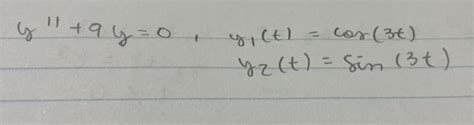 y'' + 9y = 0 , y₁(t) = cos(3t)
y₂(t) = sin(3t)